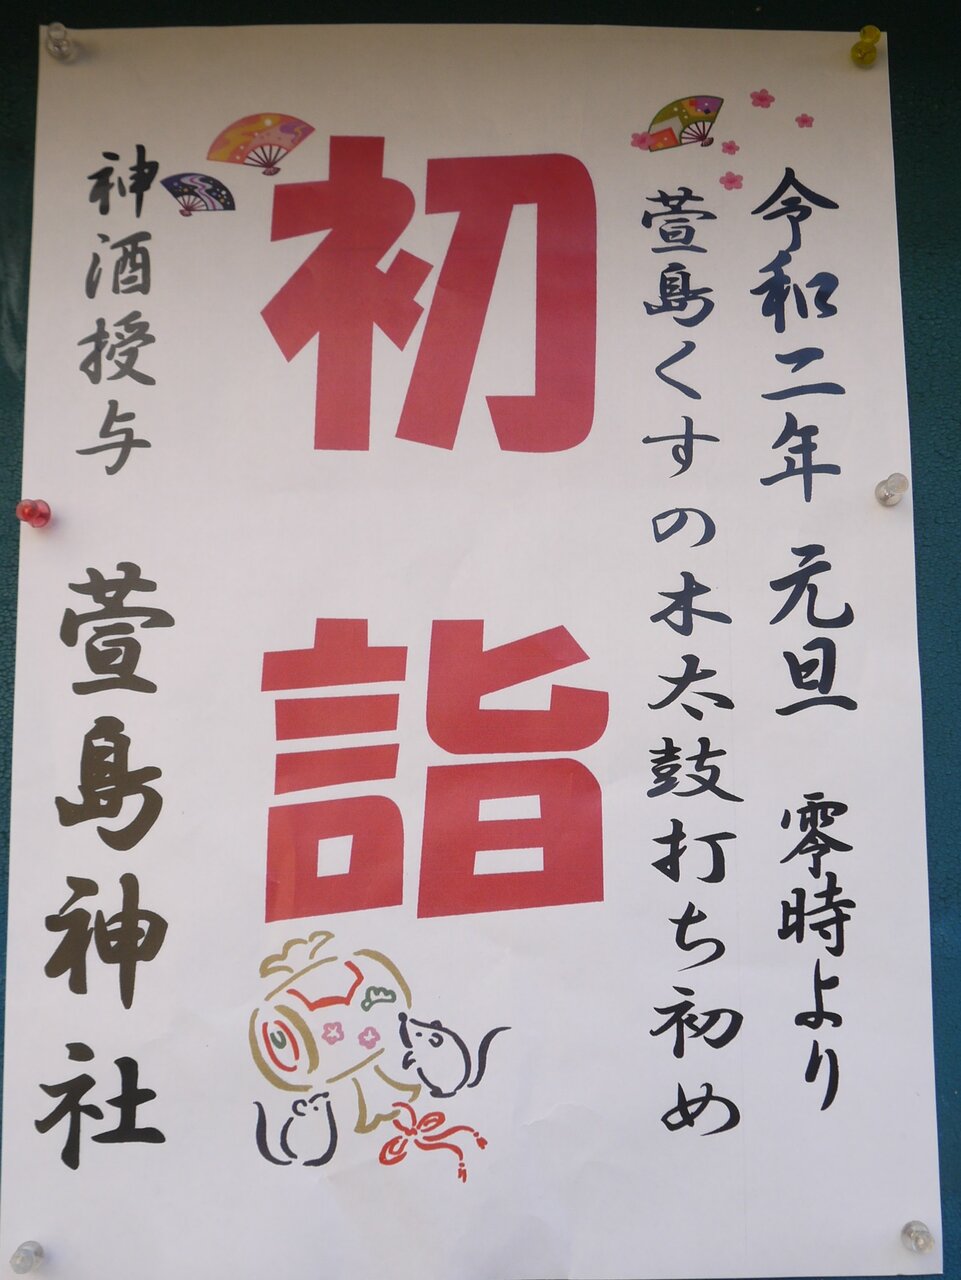 令和二年 元旦 零時より
萱島くすの木太鼓打ち初め
初詣
神酒授与 萱島神社